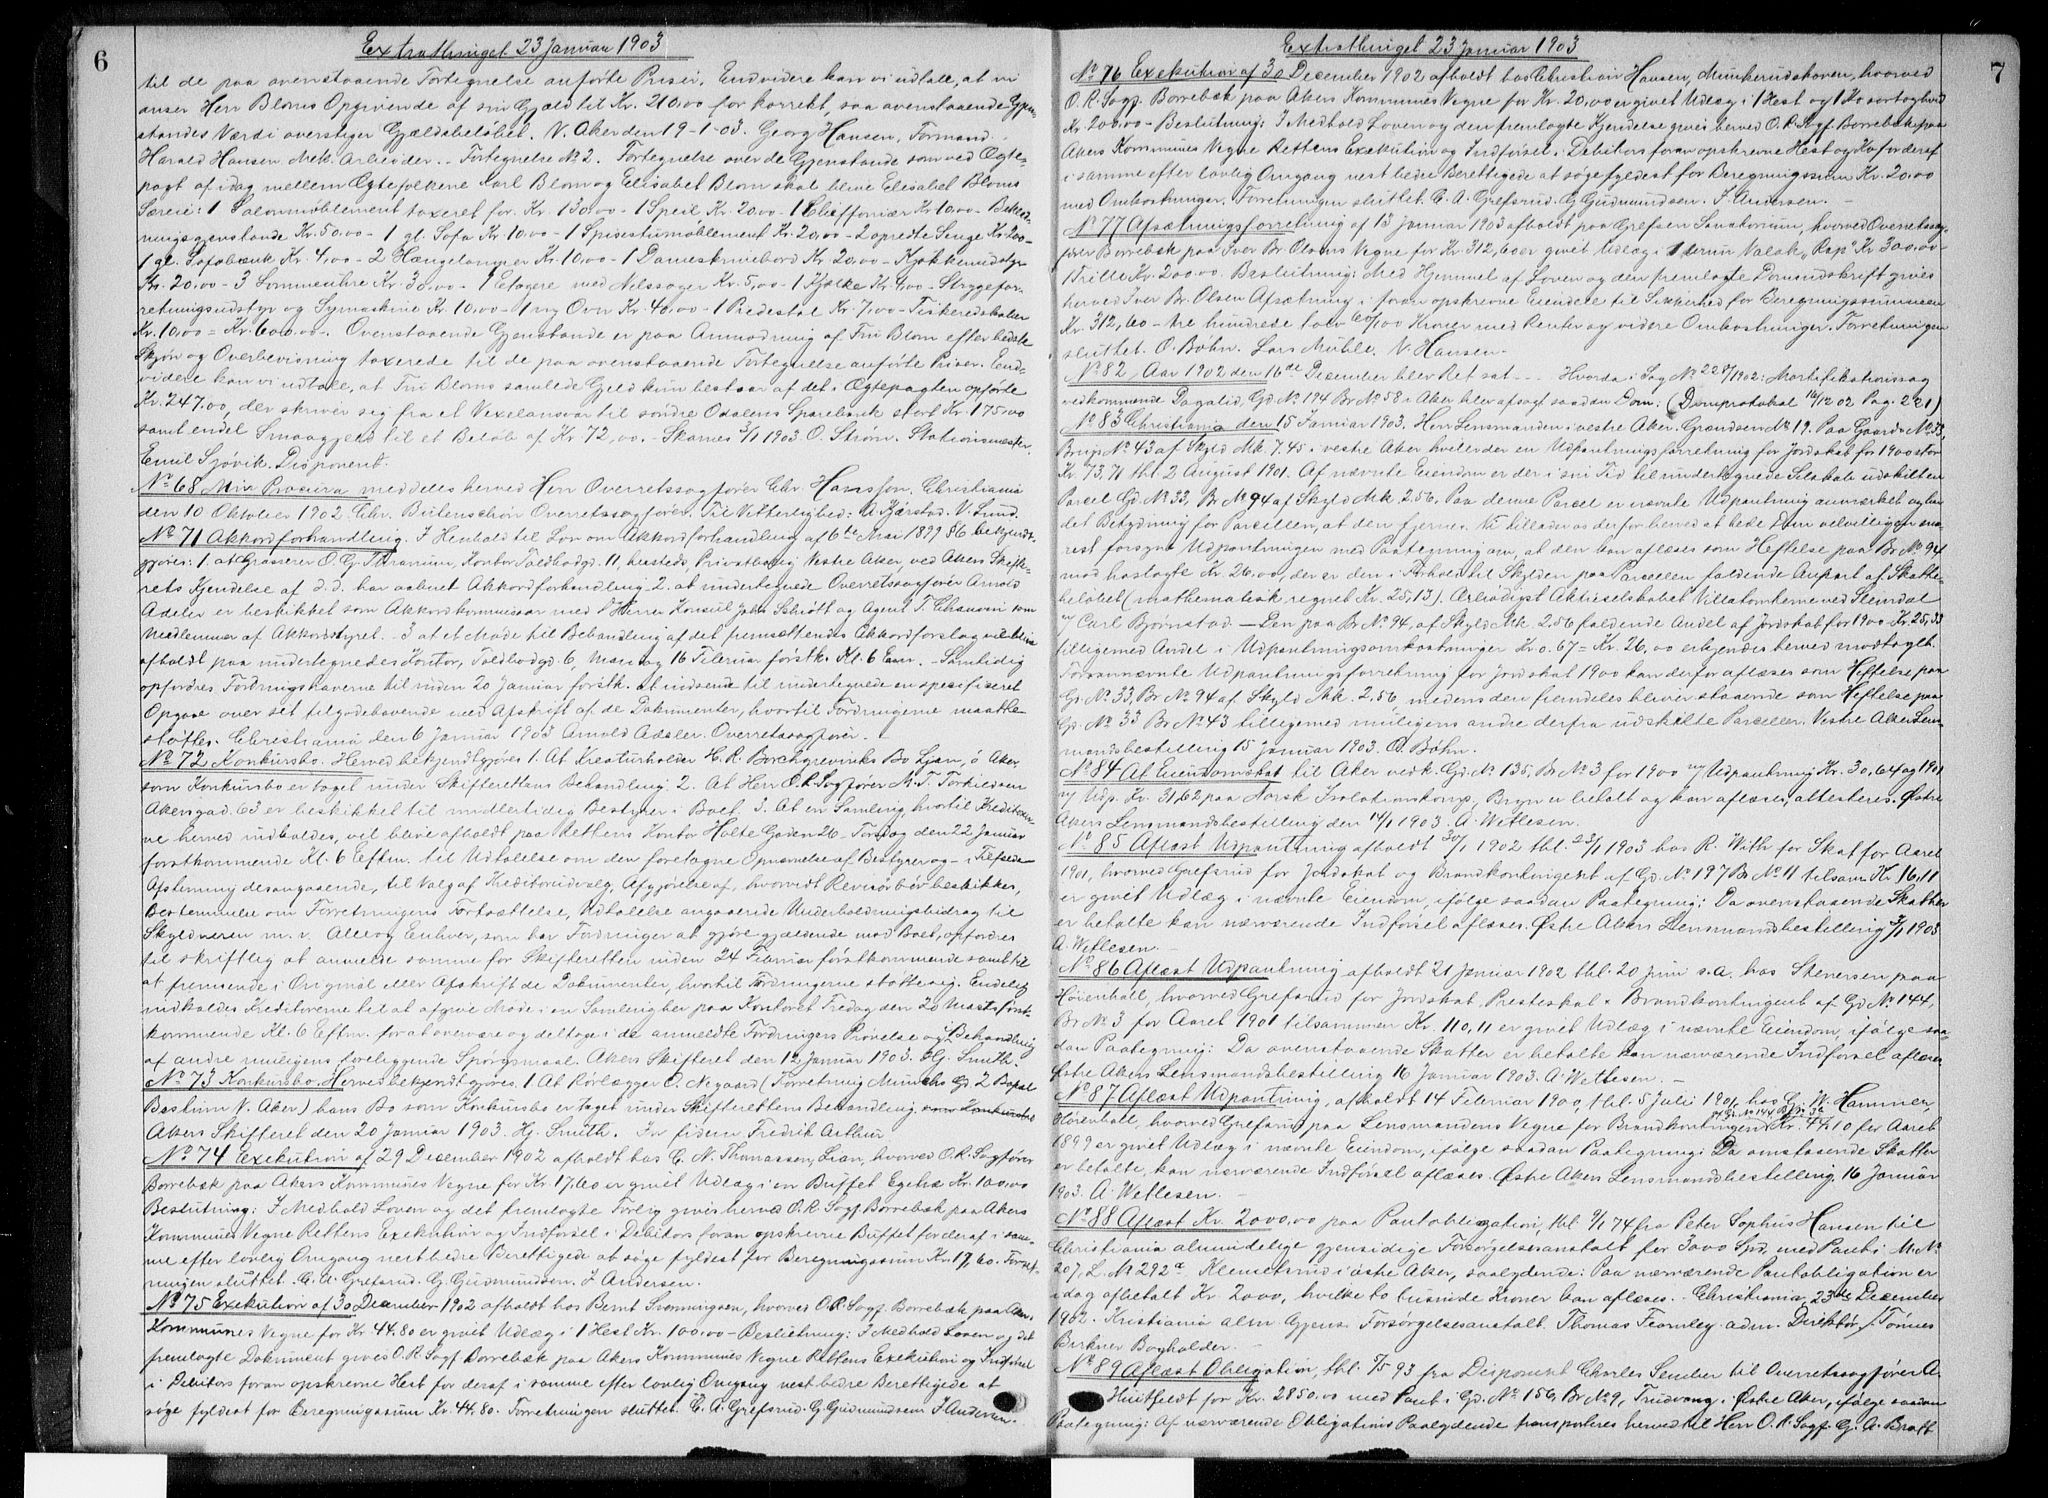 6
Extrathinget 23 Januar 1903
til de paa ovenstaaende Fortegnelse anførte Priser. Endvidere kan vi udtale, at vi
anser Herr Bloms Opgivende af sin Gjæld til Kr. 210,00 for korrekt, saa ovenstaaende Gjen-
standes Værdi overstiger Gjældsbeløbet. V. Aker den 19-1-03. Georg Hansen, Formand.
Harald Hansen Mek. Arbeider. - Fortegnelse No 2. Fortegnelse over de Gjenstande som ved Ægte-
pagt af idag mellem Ægtefolkene Karl Blom og Elisabet Blom skal blive Elisabet Bloms
Særeie: 1 Salonmøblement taxeret for Kr. 130,00 - 1 Speil Kr. 20,00 - 1 Chiffonier Kr. 10,00 - Beklæd-
ningsgjenstande Kr. 50,00 - 1 gl. Sofa Kr. 10,00 - 1 Spisestumøblement Kr. 20,00 - 2 opredte Senge Kr. 200 -
1 gl. Sofabænk Kr. 4,00 - 2 Hængelamper Kr. 10,00 - 1 Dameskrivebord Kr. 20,00 - Kjøkkenudstyr
Kr. 20,00 - 3 Lommeuhre Kr. 30,00 - 1 Etagere med Nipssager Kr. 5,00 - 1 Kjælke Kr. 4,00 - Strygefor-
retningsudstyr og Symaskine Kr. 10,00 - 1 ny Ovn Kr. 40,00 - 1 Piedestal Kr. 7,00 - Fiskeredskaber
Kr. 10,00 = Kr. 600,00. Ovenstaaende Gjenstande er paa Anmodning af Fru Blom efter bedste
Skjøn og Overbevisning taxerede til de paa ovenstaaende Fortegnelse anførte Priser. End-
videre kan vi udtale, at Fru Bloms samlede Gjeld kun bestaar af det i Ægtepagten opførte
Kr. 247,00, der skriver sig fra et Vexelansvar til søndre Odalens Sparebank stort Kr. 175,00
samt endel Smaagjeld til et Beløb af Kr. 72,00. - Skarnes 3/1 1903. O. Strøm. Stationsmester.
Emil Sjøvik. Disponent.
No 68 Min Procura meddeles herved Herr Overretssagfører Chr. Hansson. Christiania
den 10 Oktober 1902. Chr. Overretssagfører. Til Vitterlighed: A. Kjærstad. V. Lund.
No 71 Akkordforhandling. I Henhold til Lov om Akkordforhandling af 6te Mai 1899 § 6 bekjendt-
gjøres: 1. at Grosserer O. G. Kontor Toldbodgd. 11, husteds, Privatbolig Vestre Aker, ved Akers Skifte-
rets Kjendelse af d.d. har aabnet Akkordforhandling 2. at undertegnede Overretssagfører Arnold
Adeler er beskikket som Akkordkommissær med Herrer Konsul John Schrøtt og Agent T. som
Medlemmer af Akkordstyret. - 3 at et Møde til Behandling af det fremsættendes Akkordforslag vil blive
afholdt paa undertegnedes Kontor, Toldbodgd. 6, Mandag 16 Februar førstk. Kl. 6 Em. - Samtidig
opfordres Fordringshaverne til inden 20 Januar førstk. at indsende til undertegnede en specificeret
Opgave over sit tilgodehavende med Afskrift af de Dokumenter, hvortil Fordringerne maatte
støttes. Christiania den 6 Januar 1903 Arnold Adeler. Overretssagfører.
No 72 Konkursbo. Herved bekjendtgjøres 1. At Kreaturholder H. R. Borchgrevinks Bo Ljan, ø Aker,
som Konkursbo er taget under Skifterettens Behandling 2. At Herr O.R. Sagfører N. T. Torkildsen
Akersgad. 63 er beskikket til midlertidig Bestyrer i Boet. 3. At en Samling, hvortil Kreditorer-
ne herved indkaldes, vil blive afholdt paa Rettens Kontor Holte Gaden 26. Torsdag den 22 Januar
førstkommende Kl. 6 Eftm. til Udtalelse om den foretagne Opnævnelse af Bestyrer og - i Tilfælde
Afstemning desangaaende, til Valg af Kreditorudvalg, Afgjørelse af, hvorvidt Revisor bør beskikkes,
Bestemmelse om Forretningens Fortsættelse, Udtalelse angaaende Underholdningsbidrag til
Skyldneren m. v. Alle og Enhver, som har Fordringer at gjøre gjældende mod Boet, opfordres
til skriftlig at anmelde samme for Skifteretten inden 24 Februar førstkommende samt til
at fremsende i Original eller Afskrift de Dokumenter, hvortil Fordringerne støtte sig. Endelig
indkaldes Kreditorerne til at afgive Møde i en Samling her paa Kontoret Fredag den 20 Marts først-
kommende Kl. 6 Eftm. for at overvære og deltage i de anmeldte Fordringers Prøvelse og i Behandling
af andre muligens foreliggende Spørgsmaal. Akers Skifteret den 12 Januar 1903. Hj. Smith.
No 73 Konkursbo. Herved bekjendtgjøres. 1. At Rørlægger O. Negaard (Forretning Munchs Gd 2 Bopæl
Bestum V. Aker) hans Bo som Konkursbo er taget under Skifterettens Behandling som Konkursbo
Akers Skifteret den 20 Januar 1903. Hj. Smith. In fidem Fredrik Arthur
No 74 Exekution af 29 December 1902 afholdt hos C. N. Thomassen, Lian, hvorved O.R. Sagfører
Borrebæk paa Akers Kommunes Vegne for Kr. 17,60 er givet Udlæg i en Buffet Egetræ Kr. 100,00
Beslutning: I Medhold Loven og det fremlagte Forlig gives herved O.R. Sagf. Borrebæk paa Akers
Kommunes Vegne Rettens Exekution og Indførsel i Debitors foran opskrevne Buffet for deraf i sam-
me efter lovlig Omgang nest bedre Berettigede at søge fyldest for Beregningssum Kr. 17,60. Forret-
ningen sluttet. C. A. Grefsrud. G. Gudmundsen. J. Andersen.
No 75 Exekution af 30 December 1902 afholdt hos Bernt Svenningsen, hvorved O.R. Sagf. Borrebæk paa Akers
Kommunes Vegne for Kr. 44,80 er givet Udlæg i 1 Hest Kr. 100,00 - Beslutning: I Medhold Loven og det
fremlagte Dokument gives O.R. Sagf. Borrebæk paa Akers Kommunes Vegne Rettens Exekution og Indførsel
i Debitors foran opskrevne Hest for deraf i samme efter lovlig Omgang nest bedre Berettigede at
søge fyldest for Beregningssum Kr. 44.80. Forretningen sluttet. C. A. Grefsrud. G. Gudmundsen J. Andersen.
7
Extrathinget 23 Januar 1903
No 76 Exekution af 30 December 1902 afholdt hos Christian Hansen, Munkerudskoven, hvorved
O.R. Sagf. Borrebæk paa Akers Kommunes Vegne for Kr. 20,00 er givet Udlæg i 1 Hest og 1 Ko sort og hvid
Kr. 200,00 - Beslutning: I Medhold Loven og den fremlagte Kjendelse gives herved O.R. Sagf. Borrebæk paa
Akers Kommunes Vegne Rettens Exekution og Indførsel i Debitors foran opskrevne Hest og Ko for deraf
i samme efter lovlig Omgang nest bedre Berettigede at søge fyldest for Beregningssum Kr. 20.00
med Omkostninger. Forretningen sluttet. C. A. Grefsrud. G. Gudmundsen. J. Andersen.
No 77 Afsætningsforretning af 13 Januar 1903 afholdt paa Grefsen Sanatorium, hvorved Overretssag-
fører Borrebæk paa Iver Br. Olsens Vegne for Kr. 312,60 er givet Udlæg i 1 brun Valak, "Rap" Kr. 300.00 -
1 Trille Kr. 200.00. Beslutning: Med Hjemmel af Loven og den fremlagte Domsudskrift gives
herved Iver Br. Olsen Afsætning i foran opskrevne Eiendele til Sikkerhed for Beregningssummen
Kr. 312,60 - tre hundrede tolv 60/100 Kroner med Renter og videre Omkostninger. Forretningen
sluttet. O. Bøhn. Lars Muhle. N. Hansen.
No 82, Aar 1902 den 16de December blev Ret sat ... Hvorda i Sag No 228/1902: Mortifikationssag
vedkommende Dagalid, Gd. No 194 Br No 58 i Aker blev afsagt saadan Dom: (Domprotokol 16/12 02 Pag. 221)
No 83 Christiania den 15 Januar 1903. Herr Lensmanden i vestre Aker. Grændsen No 19. Paa Gaards No 33,
Brugs No 43 af Skyld Mk. 7.45 i vestre Aker hviler der en Udpantningsforretning for Jordskat for 1900 stor
Kr. 73,71 thl. 2 August 1901. Af nævnte Eiendom er der i sin Tid til undertegnede Selskab udskilt en
Parcel Gd. No 33, Br No 94 af Skyld Mk. 2.56. Paa denne Parcel er nævnte Udpantning anmerket og har
det Betydning for Parcellen, at den fjernes. Vi tillader os derfor herved at bede Dem velvilligen sna-
rest forsyne Udpantningen med Paategning om, at den kan aflæses som Heftelse paa Br No 94
mod hoslagte Kr. 26,00, der er den i Forhold til Skylden paa Parcellen faldende Anpart af Skatte-
beløbet (mathematisk regnet Kr. 25,13). Ærbødigst Aktieselskabet Villatomterne ved Slemdal
v/ Carl Bjørnstad. - Den paa Br No 94, af Skyld Mk. 2,56 faldende Andel af Jordskat for 1900 Kr. 25,33
tilligemed Andel i Udpantningsomkostninger Kr. 0.67 = Kr. 26,00 erkjendes herved modtaget.
Forannævnte Udpantningsforretning for Jordskat 1900 kan derfor aflæses som Heftelse paa
Gd. No 33, Br No 94 af Skyld Mk. 2.56, medens den fremdeles bliver staaende som Heftelse paa
Gd. No 33 Br No 43 tilligemed muligens andre derfra udskilte Parceller. Vestre Aker Lens-
mandsbestilling 15 Januar 1903. O. Bøhn.
No 84 At Eiendomsskat til Aker vedk. Gd. No 135, Br No 3 for 1900 v/ Udpantning Kr. 30,64 og 1901
v/ Udp. Kr. 31,62 paa Norsk Isolationskomp., Bryn er betalt og kan aflæses, attesteres. Østre
Akers Lensmandsbestilling den 14/1 1903. A. Wetlesen.
No 85 Aflæst Udpantning afholdt 30/1 1902 thl. 23/1 1903 hos R. With for Skat for Aaret
1901, hvorved Grefsrud for Jordskat og Brandkontingent af Gd. No 197 Br No 11 tilsam. Kr. 16,11
er givet Udlæg i nævnte Eiendom, ifølge saadan Paategning: Da ovenstaaende Skatter
er betalte kan nærværende Indførsel aflæses. Østre Akers Lensmandsbestilling 1903
A. Wetlesen.
No 86 Aflæst Udpantning afholdt 21 Januar 1902 thl. 20 Juni s. A. hos Stenersen paa
Høienhall, hvorved Grefsrud for Jordskat, Presteskat & Brandkontingent af Gd. No 144,
Br No 3 for Aaret 1901 tilsammen Kr. 110,11 er givet Udlæg i nævnte Eiendom, ifølge saa-
dan Paategning: Da ovenstaaende Skatter er betalte kan nærværende Indførsel aflæses
Østre Akers Lensmandsbestilling 16 Januar 1903. A. Wetlesen.
No 87 Aflæst Udpantning, afholdt 14 Februar 1900, thl. 5 Juli 1901, hos G. W. Hammer,
Høienhall, hvorved Grefsrud paa Lensmandens Vegne for Brandkontingent af Gd. No 144 Br No 3a Kr. 44.10 for Aaret
1899 er givet Udlæg i nævnte Eiendom, ifølge saadan Paategning: Da omstaaende Skatter
er betalte, kan nærværende Indførsel aflæses. Østre Akers Lensmandsbestilling 16 Januar
1903. A. Wetlesen.
No 88 Aflæst Kr. 2000,00 paa Pantobligation, thl. 9/1 74 fra Peter Sophus Hansen til
Christiania almindelige gjensidige Forsørgelsesanstalt for 3000 Spd. med Pant i M. No
207, L. No 292a Klemetsrud i østre Aker, saalydende: Paa nærværende Pantobligation er
idag afbetalt Kr. 2000, hvilke to tusinde Kroner kan aflæses. Christiania 23de December
1902. Kristiania alm. Gjens. Forsørgelsesanstalt. Thomas Fearnley adm. Direktør / Tønnes
Birkner Bogholder.
No 89 Aflæst Obligation, thl. 93 fra Disponent Charles Sember til Overretssagfører A.
Huitfeldt for Kr. 2850.00 med Pant i Gd. No 156, Br No 9, Trudvang i Østre Aker, ifølge saadan
Paategning: Af nærværende Obligations Paalydende transporteres herved til Herr O.R. Sagf. G. A. Bratt